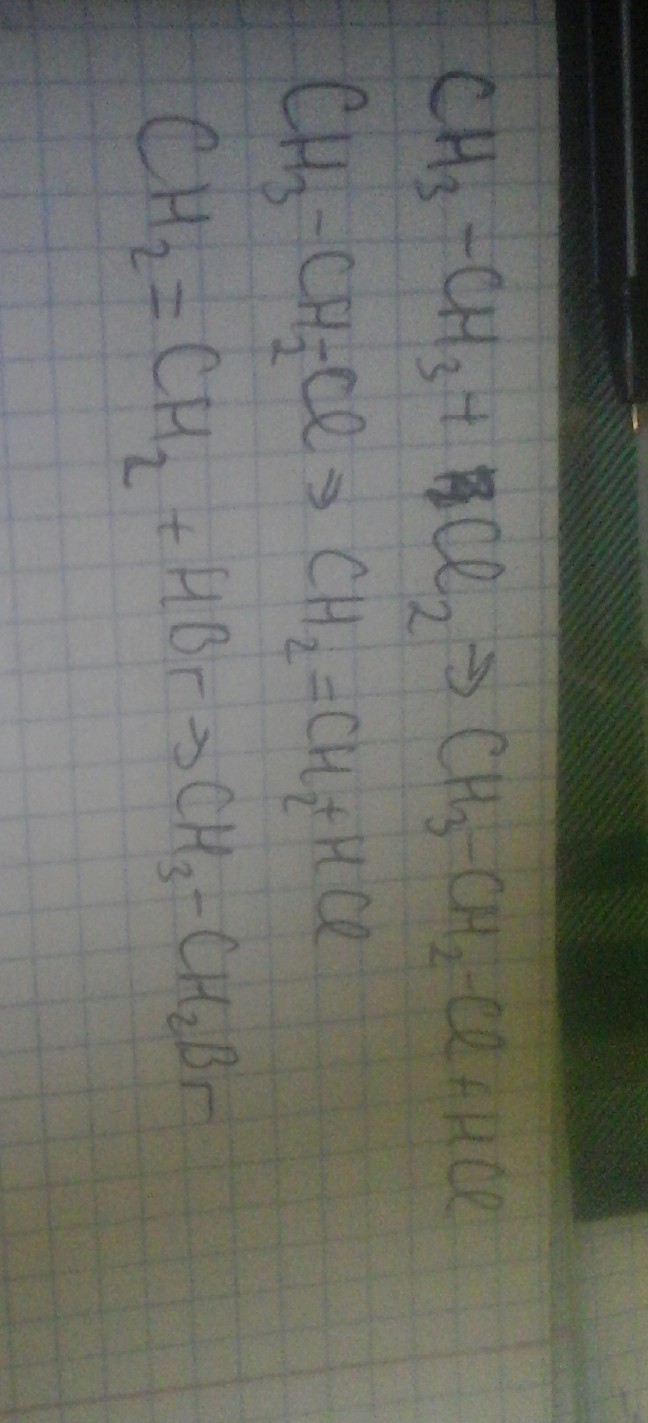 CH₃-CH₃+Cl₂→CH₃-CH₂-Cl+HCl
CH₃-CH₂-Cl→CH₂=CH₂+HCl
CH₂=CH₂+HBr→CH₃-CH₂Br